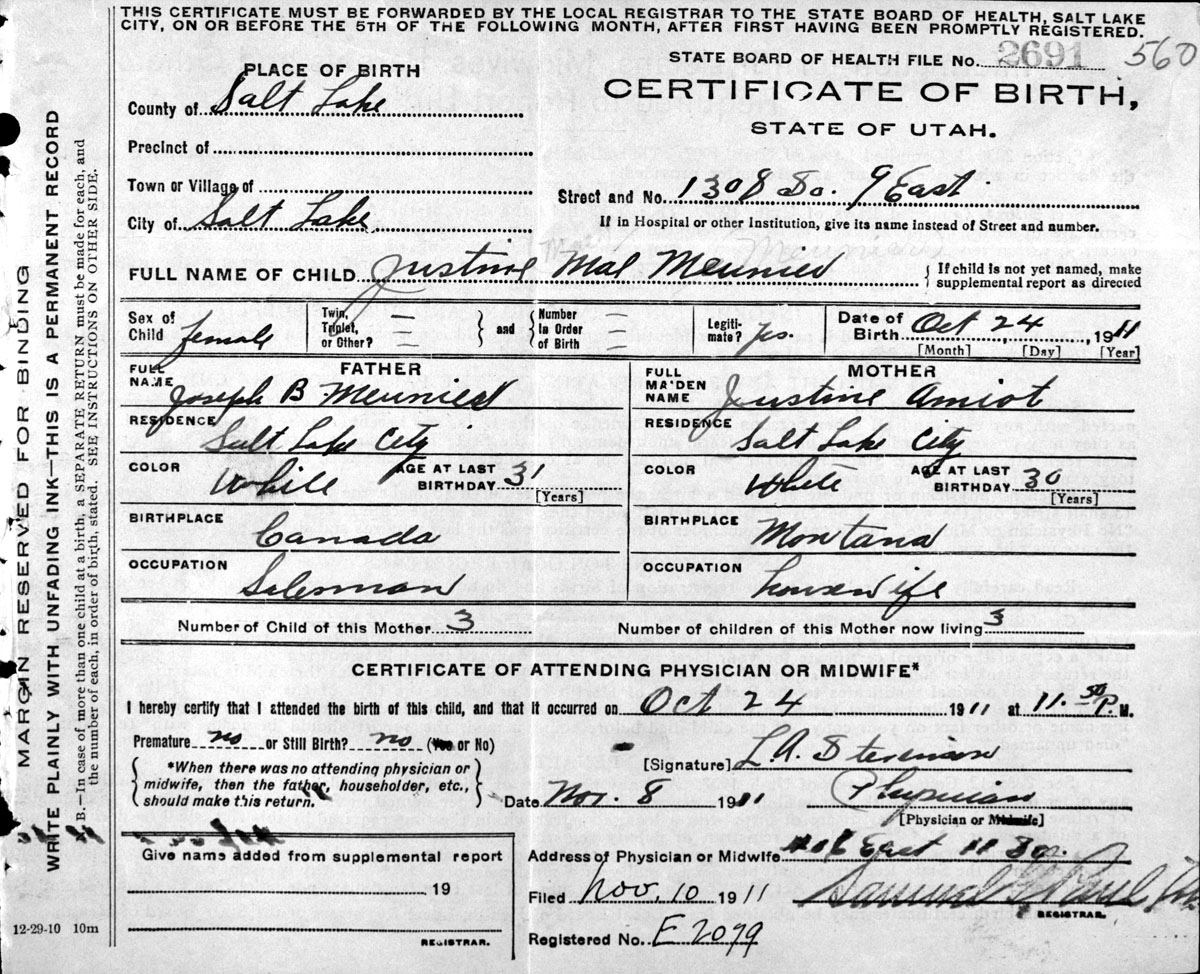 THIS CERTIFICATE MUST BE FORWARDED BY THE LOCAL REGISTRAR TO THE STATE BOARD OF HEALTH, SALT LAKE
CITY, ON OR BEFORE THE 5TH OF THE FOLLOWING MONTH, AFTER FIRST HAVING BEEN PROMPTLY REGISTERED.
STATE BOARD OF HEALTH FILE No. 2691 560
PLACE OF BIRTH
CERTIFICATE OF BIRTH,
STATE OF UTAH.
County of Salt Lake
Precinct of
Town or Village of
Street and No. 1308 So. 9 East
City of Salt Lake
If in Hospital or other Institution, give its name instead of Street and number.
FULL NAME OF CHILD Justine Mal Meunier
{ If child is not yet named, make
supplemental report as directed
Sex of Child female
Twin, Triplet, or Other? } and { Number In Order of Birth
Legiti-mate? yes
Date of Birth Oct 24, 1911
[Month] [Day] [Year]
FATHER
FULL NAME Joseph B Meunier
RESIDENCE Salt Lake City
COLOR White AGE AT LAST BIRTHDAY 31
[Years]
BIRTHPLACE Canada
OCCUPATION Salesman
MOTHER
FULL MAIDEN NAME Justine Amiot
RESIDENCE Salt Lake City
COLOR White AGE AT LAST BIRTHDAY 30
[Years]
BIRTHPLACE Montana
OCCUPATION housewife
Number of Child of this Mother 3 Number of children of this Mother now living 3
CERTIFICATE OF ATTENDING PHYSICIAN OR MIDWIFE*
I hereby certify that I attended the birth of this child, and that it occurred on Oct 24 1911 at 11.50 P. M.
Premature no or Still Birth? no (Yes or No)
*When there was no attending physician or
midwife, then the father, householder, etc.,
should make this return.
[Signature] L.A. Stevenson
Date Nov. 8 1911 Physician
[Physician or Midwife]
Give name added from supplemental report
19
REGISTRAR.
Address of Physician or Midwife East
Filed Nov, 10 1911 Samuel G. Paul
REGISTRAR.
Registered No. E 2079
12-29-10 10m
MARGIN RESERVED FOR BINDING
WRITE PLAINLY WITH UNFADING INK—THIS IS A PERMANENT RECORD
B.—In case of more than one child at a birth, a SEPARATE RETURN must be made for each, and
the number of each, in order of birth, stated. SEE INSTRUCTIONS ON OTHER SIDE.